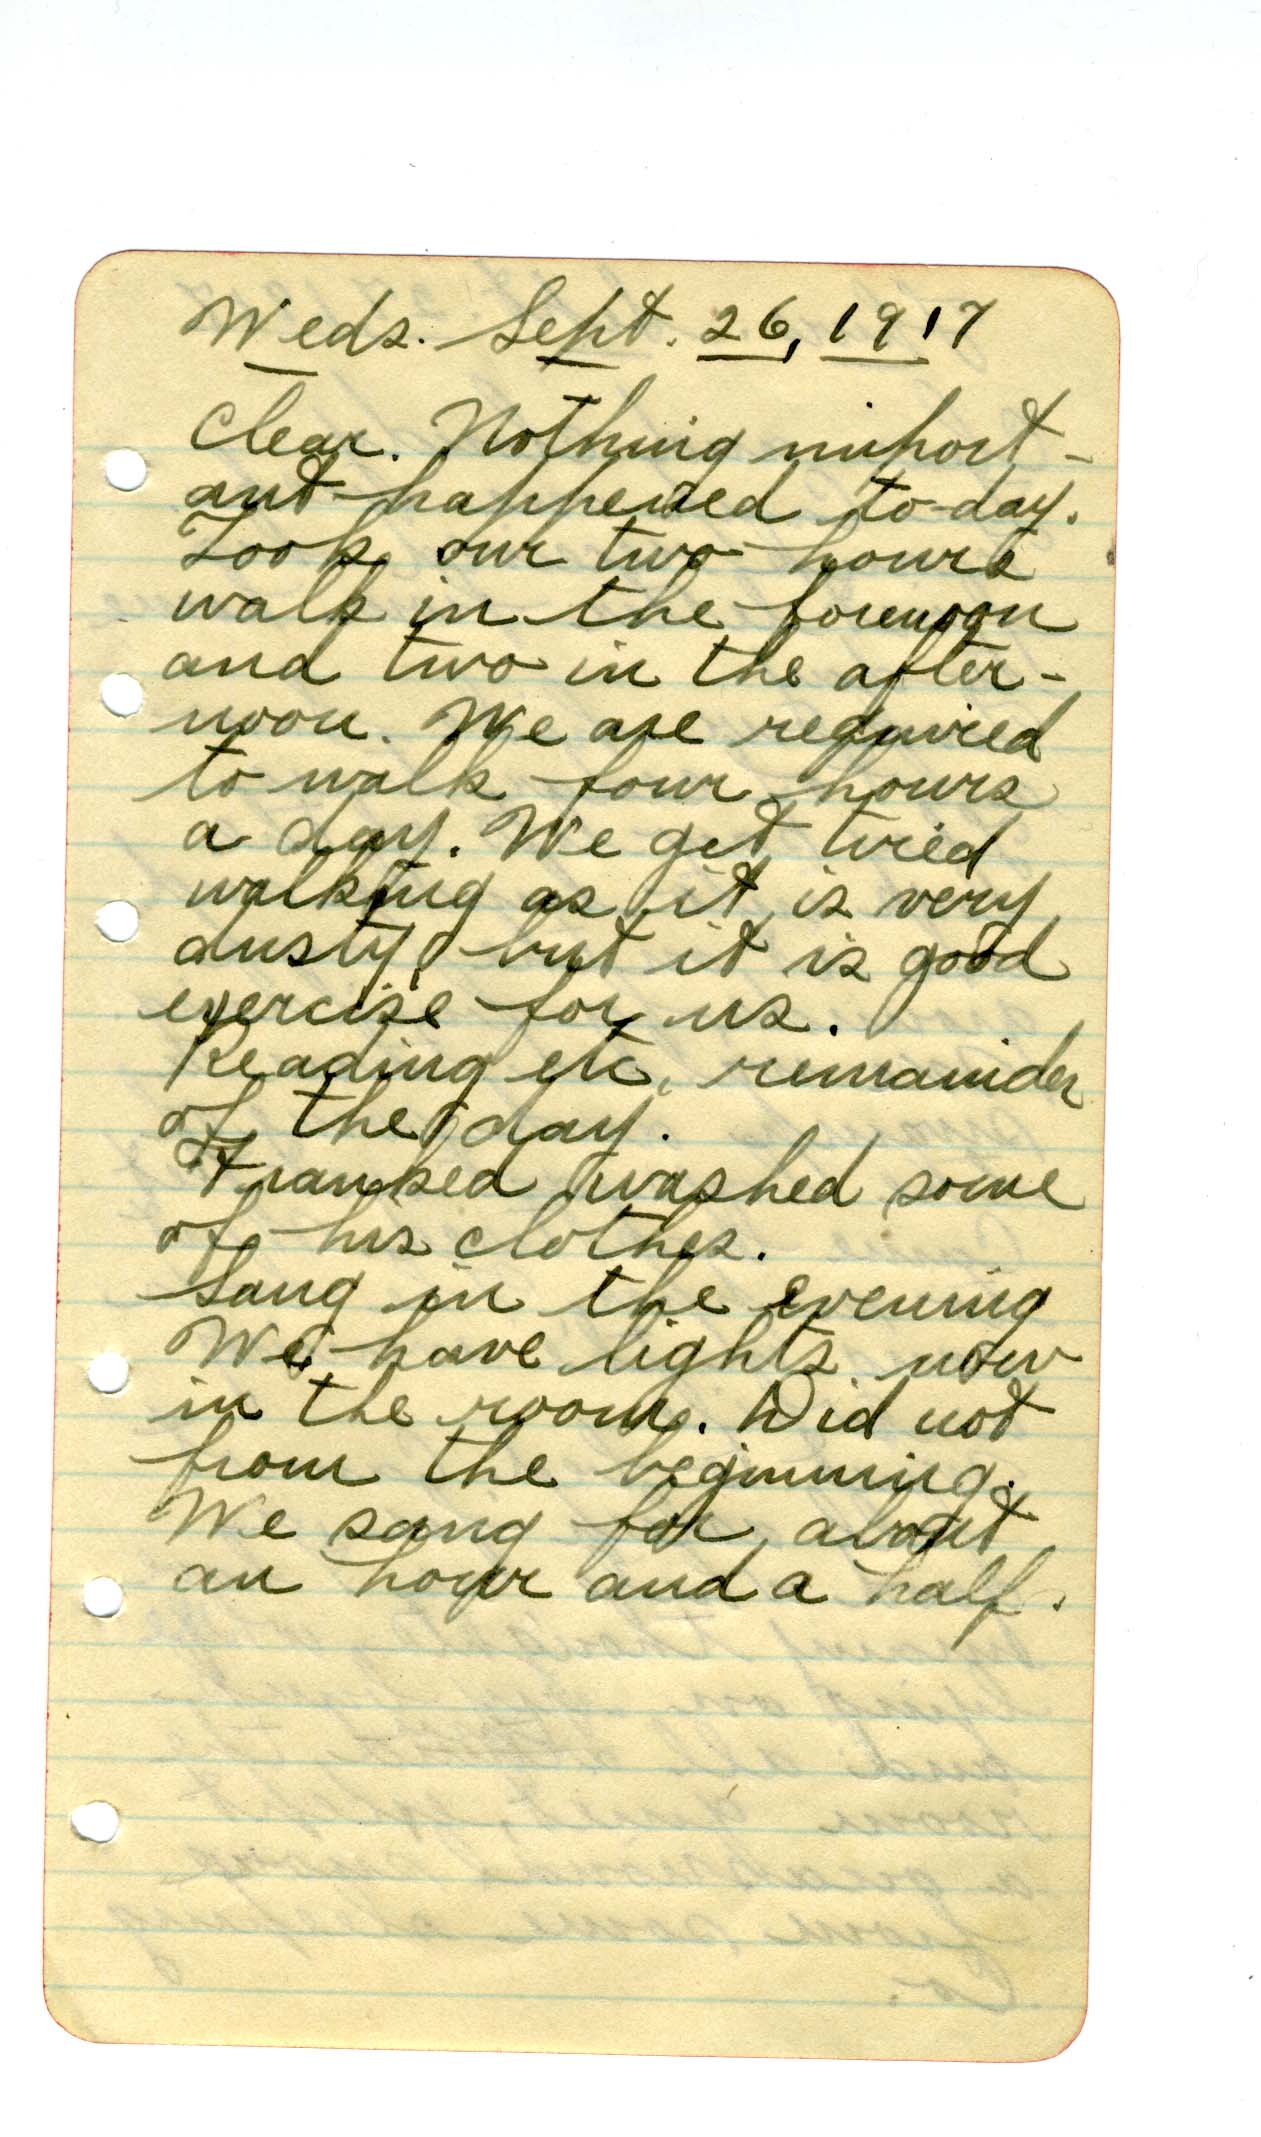 Weds. Sept. 26, 1917
Clear. Nothing import-
ant happened to-day.
Took our two hours
walk in the forenoon
and two in the after-
noon. We are required
to walk four hours
a day. We get tired
walking as it is very
dusty, but it is good
exercise for us.
Reading etc. remainder
of the day.
washed some
of his clothes.
Sang in the evening
We have lights now
in the room. Did not
from the beginning.
We sang for about
an hour and a half.